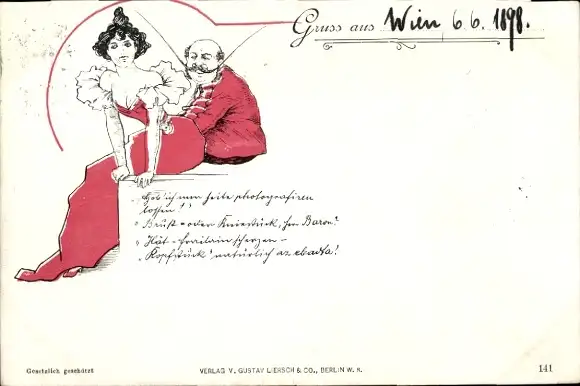 Gruss aus Wien 6.6.1898.
"Hab' ich mer heite photografiren
lossen!"
"Brust- oder Kniestück, Herr Baron?"
scherzen –
"Kopfstück" natürlich az ebadta!
Gesetzlich geschützt
VERLAG V. GUSTAV LIERSCH & CO., BERLIN W. 8.
141